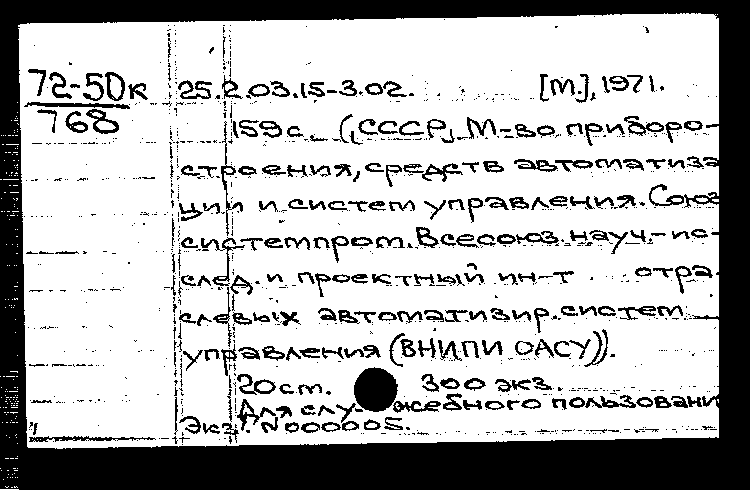 72-50к 25.2.03.15-3.02. [М.], 1971.
768 159 с. (СССР, М-во приборо-
строения, средств автоматиза
ции и систем управления. Союз
системпром. Всесоюз. науч.-ис-
след. и проектный ин-т отра
слевых автоматизир. систем
управления (ВНИПИ ОАСУ)).
20 см. 300 экз.
Для слу-жебного пользовани
Экз. N 000005.